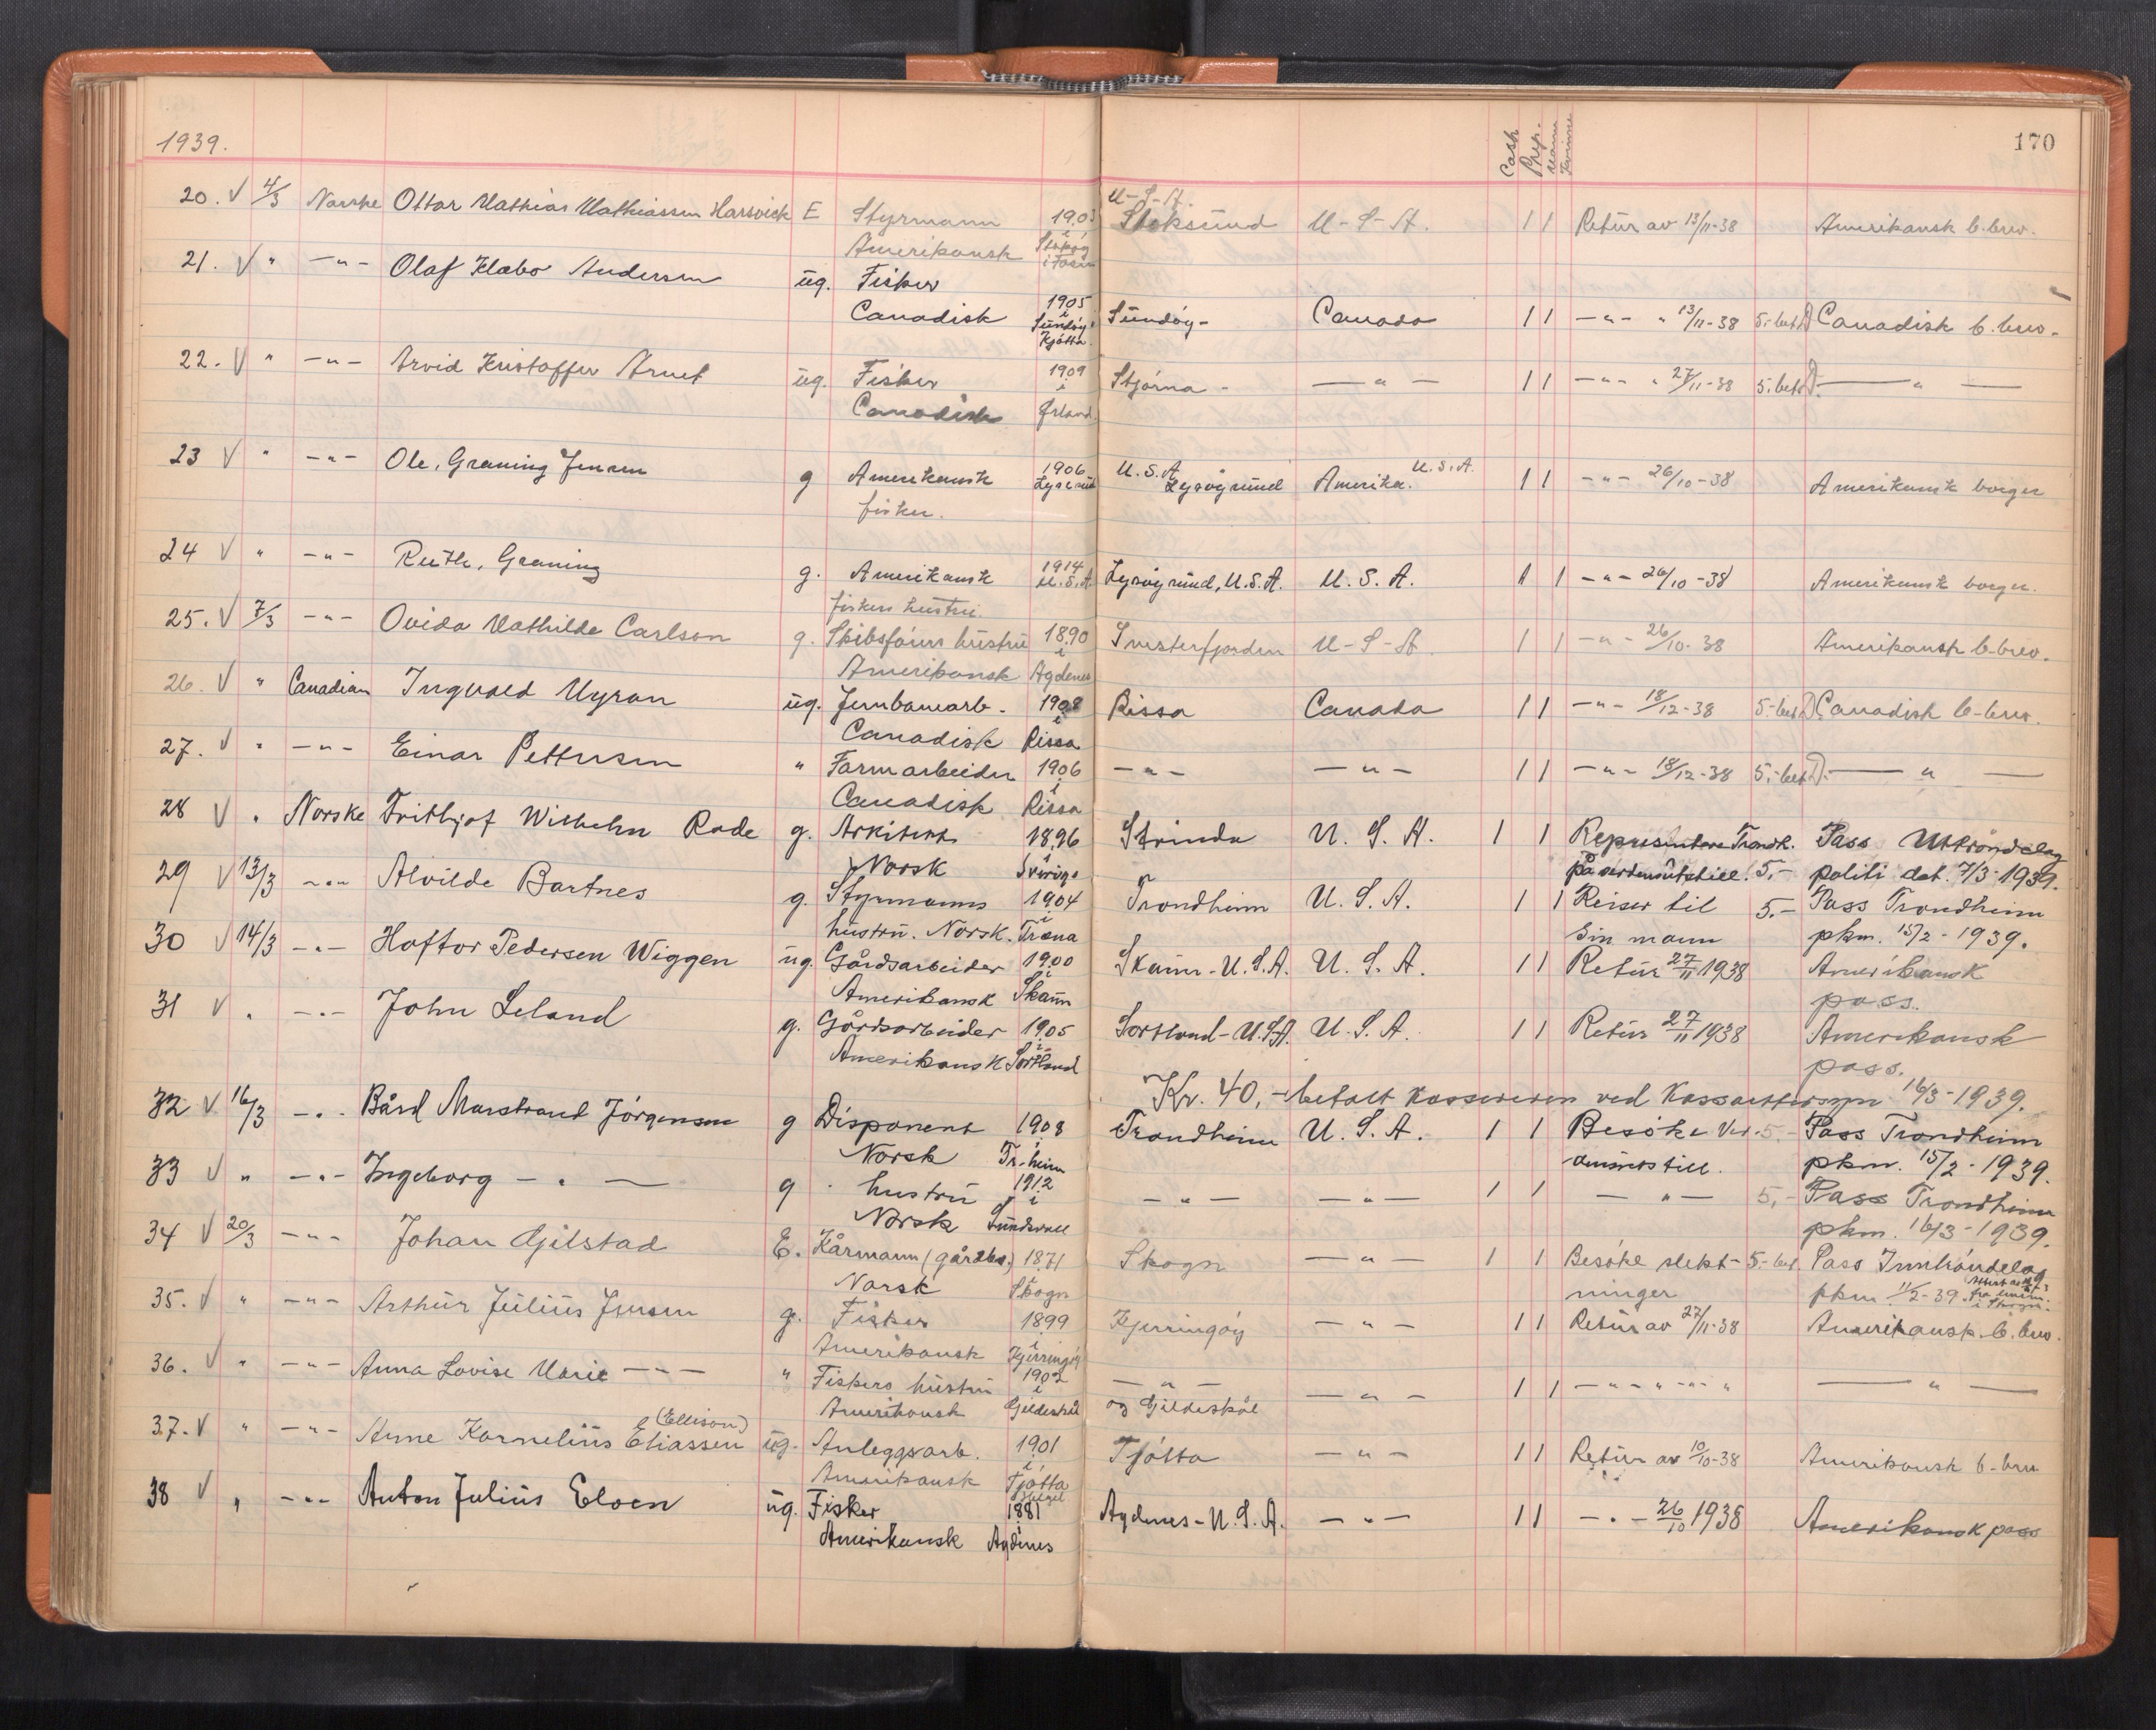 1939.
Cash Prep. Mann Kvinne
170
20. V 4/3 Norske Ottar Mathias Mathiassen Harsvick E Styrmann 1903 U-S-A. Stoksund U-S-A. 1 1 Retur av 13/11-38 Amerikansk b.brev.
Amerikansk i Stokøy i Fosen
21. V " -"- Olaf Klæbo Andersen ug. Fisker
Canadisk 1905 i Sundøy Sundøy- Canada 1 1 -"- " 13/11-38 5.-bet. Canadisk b.brev.
Kjøtta.
22. V " -"- Arvid Kristoffer Arnet ug. Fisker 1909 i Stjørna - -"- 1 1 -"- " 27/11-38 5.bet. -"-
Canadisk Ørland.
23 V " -"- Ole, Graning Jensen g Amerikansk 1906 Lysøsund U.S.A. Lysøysund Amerika. U.S.A. 1 1 -"- 26/10-38 Amerikansk borger
fisker.
24 V " -"- Ruth, Graning g. Amerikansk 1914 U.S.A Lysøysund, U.S.A. U.S.A. 1 1 -"- 26/10-38 Amerikansk borger.
fiskers hustru.
25. V 7/3 -"- Ovida Mathilde Carlson g. Skibsførers hustru 1890 i Snesterfjorden U-S-A. 1 1 -"- 26/10-38 Amerikansk b-brev.
Amerikansk Agdenes
26. V " Canadian Ingvald Myran ug. Jernbanearb. 1908 i Rissa Canada 1 1 -"- 18/12-38 5.-bet. Canadisk b-brev.
Canadisk Rissa
27. V " -"- Einar Pettersen " Farmarbeider 1906 i -"- -"- 1 1 -"- 18/12-38 5,-bet. -"-
Canadisk Rissa
28 V " Norske Frithjof Wilhelm Rode g. Arkitekt 1896 i Strinda U.S.A. 1 1 Representere Trondh. Pass Uttrøndelag
Norsk Sverige på verdensutstill. 5,- politi dat. 7/3-1939.
29 V 13/3 -"- Alvilde Bartnes g. Styrmanns 1904 i Trondheim U.S.A. 1 1 Reiser til 5.- Pass Trondheim
hustru. Norsk. Træna sin mann pkm. 15/2-1939.
30 V 14/3 -"- Haftor Pedersen Wiggen ug. Gårdsarbeider 1900 i Skaun-U.S.A. U.S.A. 1 1 Retur 27/11 1938 Amerikansk
Amerikansk Skaun pass.
31 V " -"- John Leland g. Gårdsarbeider 1905 i Sortland-U.S.A. U.S.A. 1 1 Retur 27/11 1938 Amerikansk
Amerikansk Sortland pass.
Kr. 40,- betalt kassereren ved kassaettersyn 16/3-1939.
32 V 16/3 -"- Bård Marstrand Jörgensen g Disponent 1908 i Trondheim U.S.A. 1 1 Besöke Ver- 5.- Pass Trondheim
Norsk Tr-heim densutstill. pkm. 15/2-1939.
33 V " -"- Ingeborg -"- g. hustru 1912 i -"- -"- 1 1 -"- 5,- Pass Trondheim
Norsk Sundsvall pkm. 16/3-1939.
34 V 20/3 -"- Johan Gjilstad E. Kårmann (gårdbr.) 1871 i Skogn -"- 1 1 Besöke slekt- 5.-bet. Pass Inntröndelag
Norsk Skogn ninger pkm. 11/2-39.
35. V " -"- Arthur Julius Jensen g. Fisker 1899 i Kjerringöy -"- 1 1 Retur av 27/11-38 Amerikansk b.brev.
Amerikansk Kjerringöy
36. V " -"- Anna Lovise Marie -"- " Fiskers hustru 1902 i -"- -"- 1 1 -"- " -"- " -"-
Amerikansk Gildeskål og Gildeskål
37. V " -"- Arne Kornelius Eliassen (Ellison) ug. Anleggsarb. 1901 i Tjötta -"- 1 1 Retur av 10/10-38 Amerikansk b-brev
Amerikansk Tjötta
38 V " -"- Anton Julius Eloen ug. Fisker 1881 i Agdenes-U.S.A. -"- 1 1 -"- 26/10 1938 Amerikansk pass
Amerikansk Agdenes